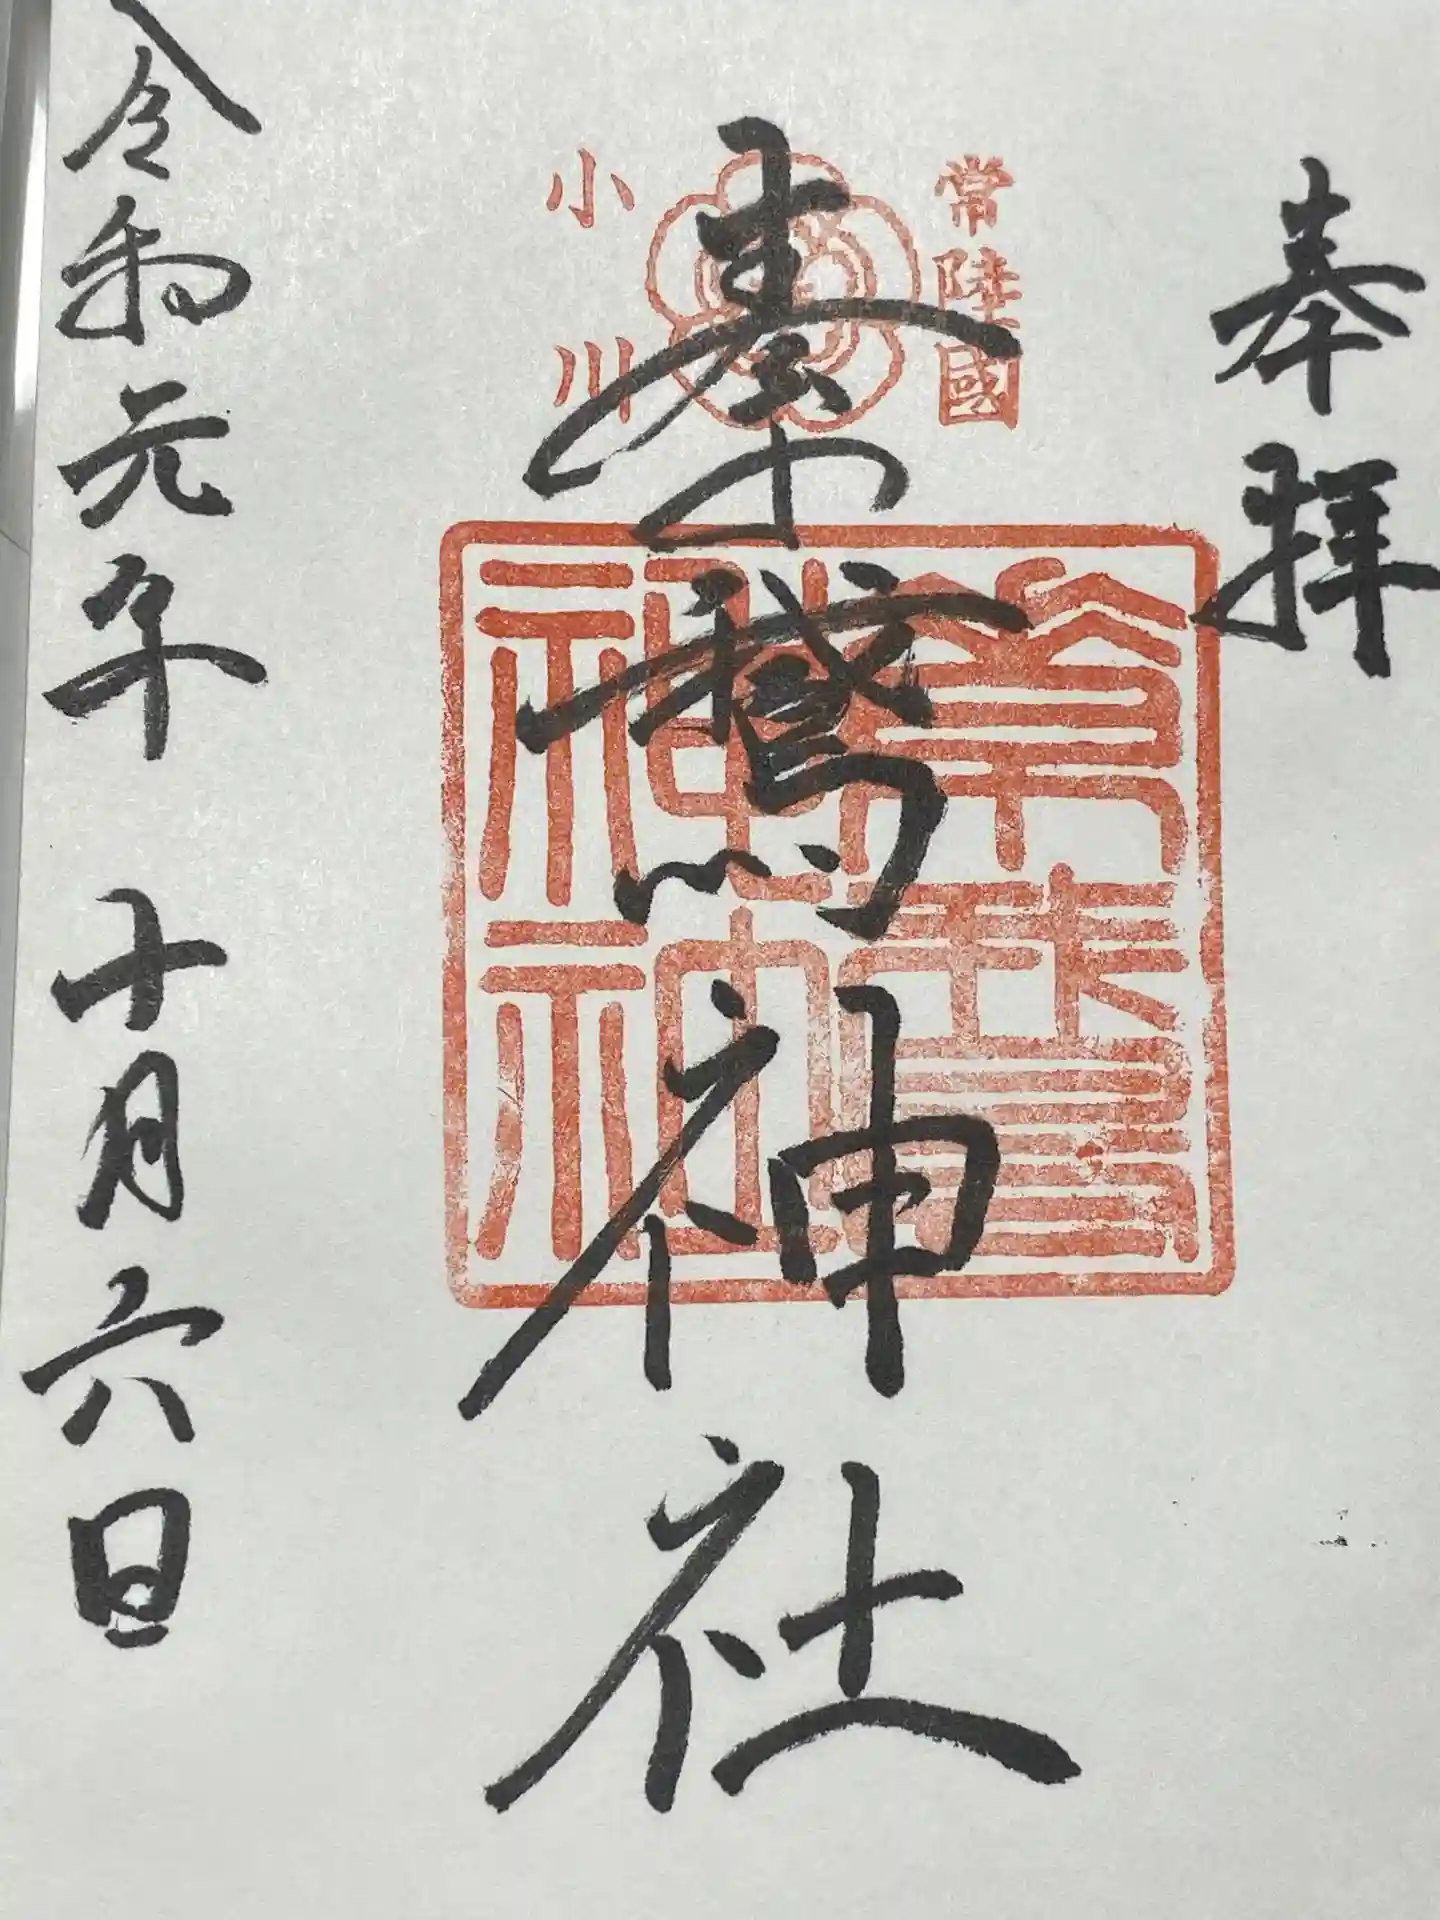 奉拝
常陸國
素鵞神社
小川
素鵞
神社
令和元年 十月六日